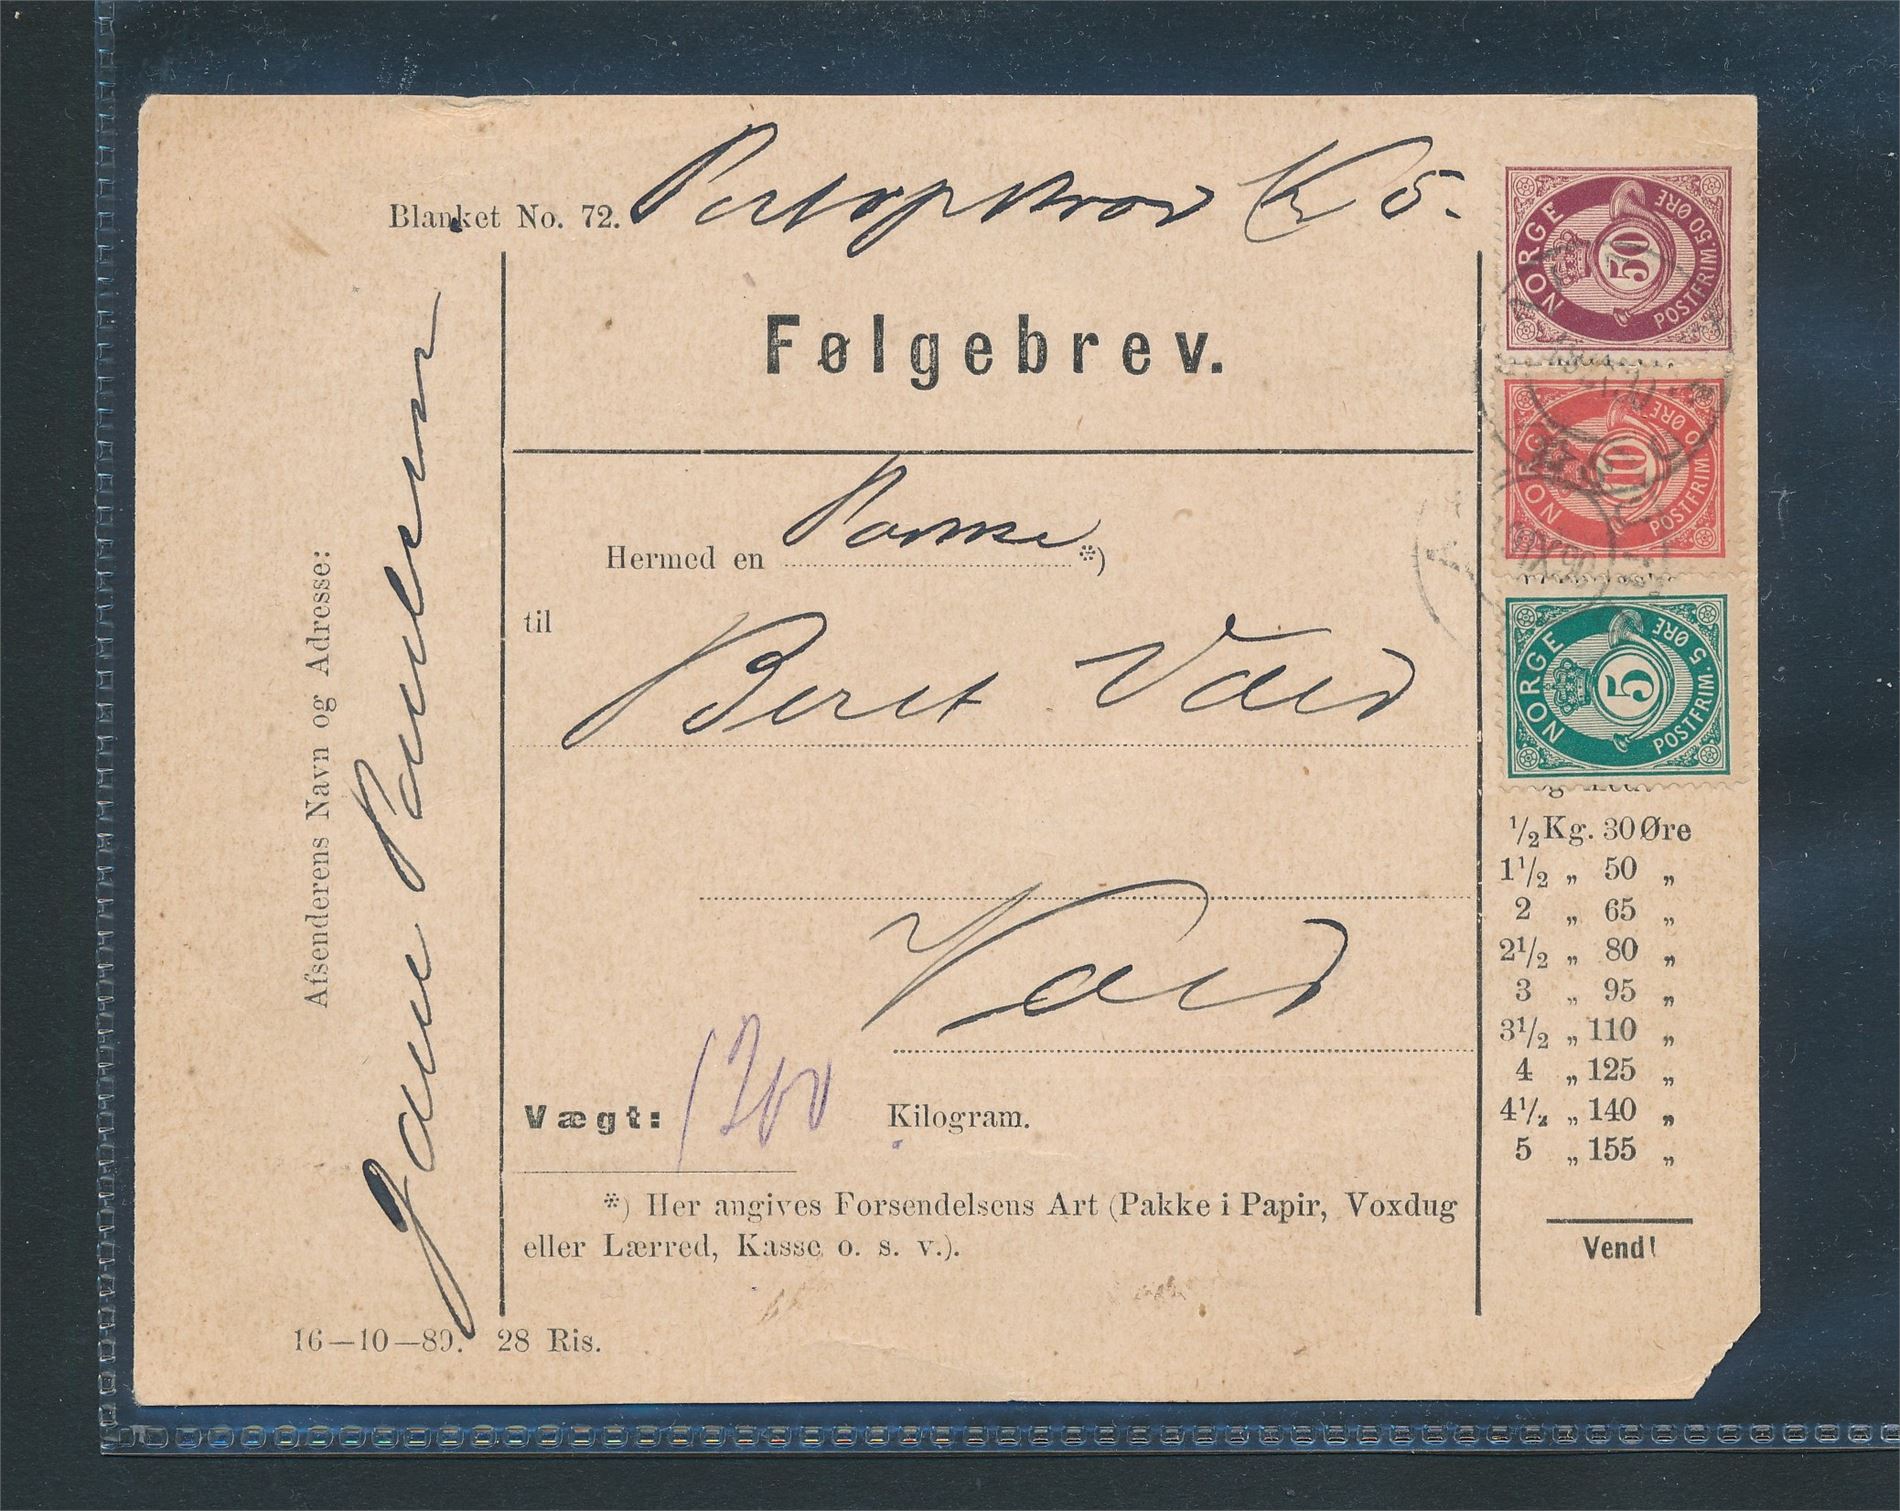 Blanket No. 72.
Kr 5.
Følgebrev.
Afsenderens Navn og Adresse:
Jane Paulsen
Hermed en *)
til
Beret
Vægt: 1200 Kilogram.
*) Her angives Forsendelsens Art (Pakke i Papir, Voxdug
eller Lærred, Kasse o. s. v.).
16—10—89. 28 Ris.
NORGE 50 POSTFRIM. 50 ØRE
NORGE 10 POSTFRIM 10 ØRE
NORGE 5 POSTFRIM. 5 ØRE
1/2 Kg. 30 Øre
1 1/2 „ 50 „
2 „ 65 „
2 1/2 „ 80 „
3 „ 95 „
3 1/2 „ 110 „
4 „ 125 „
4 1/2 „ 140 „
5 „ 155 „
Vend!